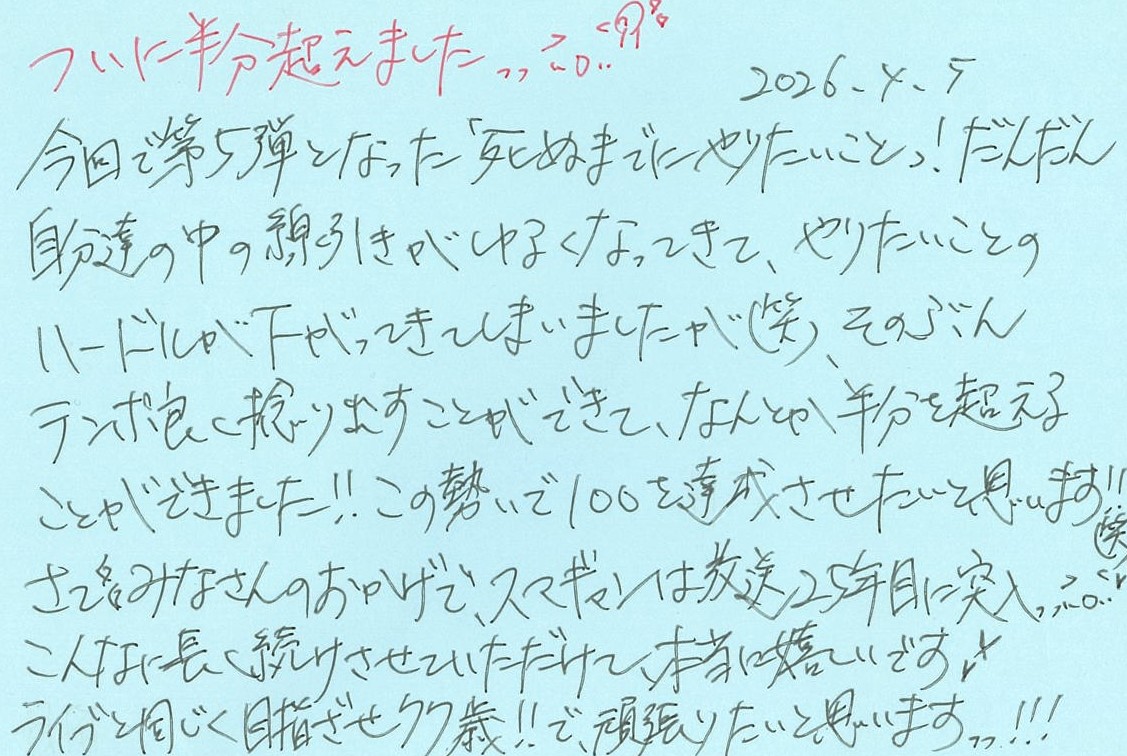 ついに半分超えました,,>▽<,,
2026.4.5
今回で第5弾となった「死ぬまでにやりたいこと」!だんだん
自分達の中の線引きがゆるくなってきて、やりたいことの
ハードルが下がってきてしまいましたが(笑)、そのぶん
テンポ良く捻り出すことができて、なんとか半分を超える
ことができました!!この勢いで100を達成させたいと思います!!(笑)
さてさてみなさんのおかげで、スマギャンは放送25年目に突入
こんなに長く続けさせていただけて、本当に嬉しいです
ライブと同じく目指せ77歳!!で、頑張りたいと思います,,!!!